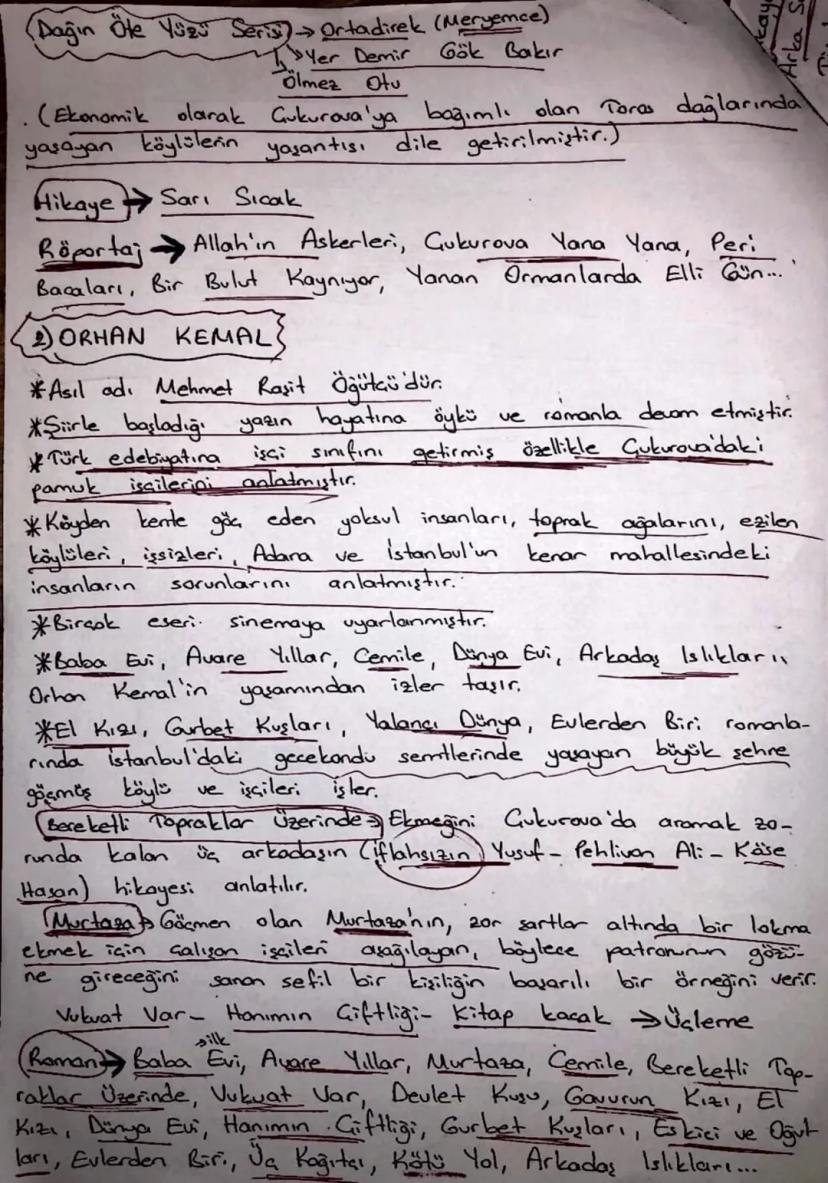 Dağın Öte Yüzü Serisi → Ortadirek (Meryemce)
→ Yer Demir Gök Bakır
→ Ölmez Otu
. (Ekonomik olarak Çukurova'ya bağımlı olan Toros dağlarında
yaşayan köylülerin yaşantısı dile getirilmiştir.)
Hikaye → Sarı Sıcak
Röportaj → Allah'ın Askerleri, Çukurova Yana Yana, Peri
Bacaları, Bir Bulut Kaynıyor, Yanan Ormanlarda Elli Gün...
2) ORHAN KEMAL
* Asıl adı Mehmet Raşit Öğütçü'dür.
* Şiirle başladığı yazın hayatına öykü ve romanla devam etmiştir.
* Türk edebiyatına işçi sınıfını getirmiş özellikle Çukurova'daki
pamuk işçilerini anlatmıştır.
* Köyden kente göç eden yoksul insanları, toprak ağalarını, ezilen
köylüleri, işsizleri, Adana ve İstanbul'un kenar mahallesindeki
insanların sorunlarını anlatmıştır.
* Birçok eseri sinemaya uyarlanmıştır.
* Baba Evi, Avare Yıllar, Cemile, Dünya Evi, Arkadaş Islıkları,
Orhan Kemal'in yaşamından izler taşır.
* El Kızı, Gurbet Kuşları, Yalancı Dünya, Evlerden Biri romanla-
rında İstanbul'daki gecekondu semtlerinde yaşayan büyük şehre
göçmüş köylü ve işçileri işler.
Bereketli Topraklar Üzerinde → Ekmeğini Çukurova'da aramak zo-
runda kalan üç arkadaşın (İflahsızın Yusuf - Pehlivan Ali - Köse
Hasan) hikayesi anlatılır.
Murtaza → Göçmen olan Murtaza'nın, zor şartlar altında bir lokma
ekmek için çalışan işçileri aşağılayan, böylece patronunun gözü-
ne gireceğini sanan sefil bir kişiliğin başarılı bir örneğini verir.
Vukuat Var - Hanımın Çiftliği - Kitap kaçak → Üçleme
→ ilk
Roman → Baba Evi, Avare Yıllar, Murtaza, Cemile, Bereketli Top-
raklar Üzerinde, Vukuat Var, Devlet Kuşu, Gavurun Kızı, El
Kızı, Dünya Evi, Hanımın Çiftliği, Gurbet Kuşları, Eskici ve Oğul
ları, Evlerden Biri, Üç Kağıtçı, Kötü Yol, Arkadaş Islıkları...